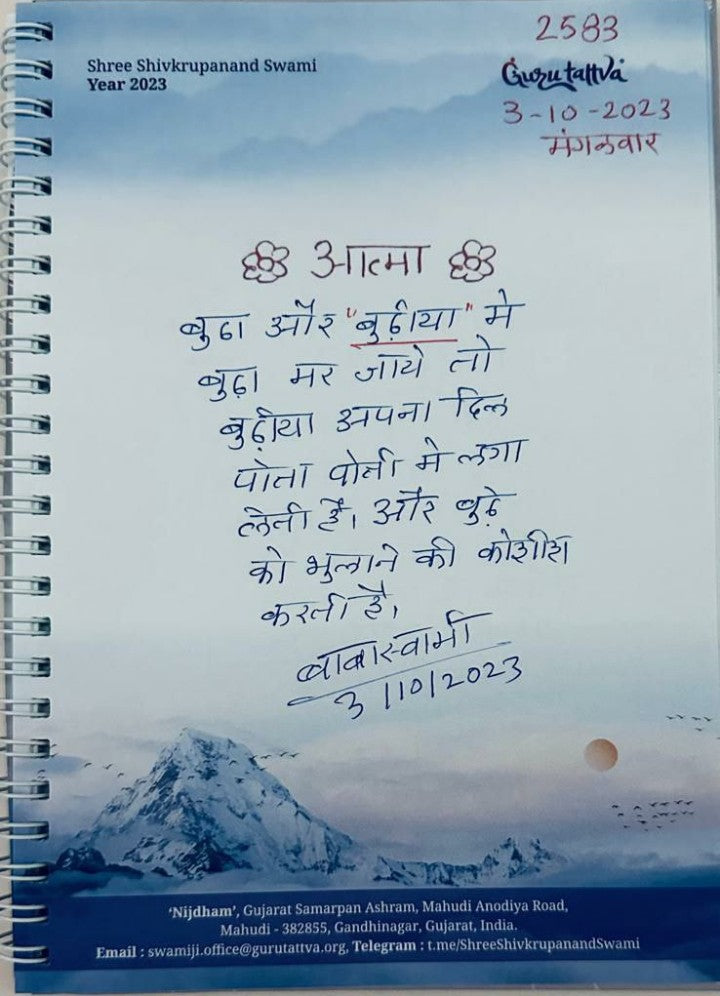 2583
Shree Shivkrupanand Swami
Year 2023
Gurutattva
3-10-2023
मंगळवार
आत्मा
बुढा और "बुढ़ीया" मे
बुढ़ा मर जाये तो
बुढ़ीया अपना दिल
पोता पोती मे लगा
लेती है। और बुढ़े
को भुलाने की कोशीश
करती है।
बाबास्वामी
3/10/2023
'Nijdham', Gujarat Samarpan Ashram, Mahudi Anodiya Road,
Mahudi - 382855, Gandhinagar, Gujarat, India.
Email : swamiji.office@gurutattva.org, Telegram : t.me/ShreeShivkrupanandSwami